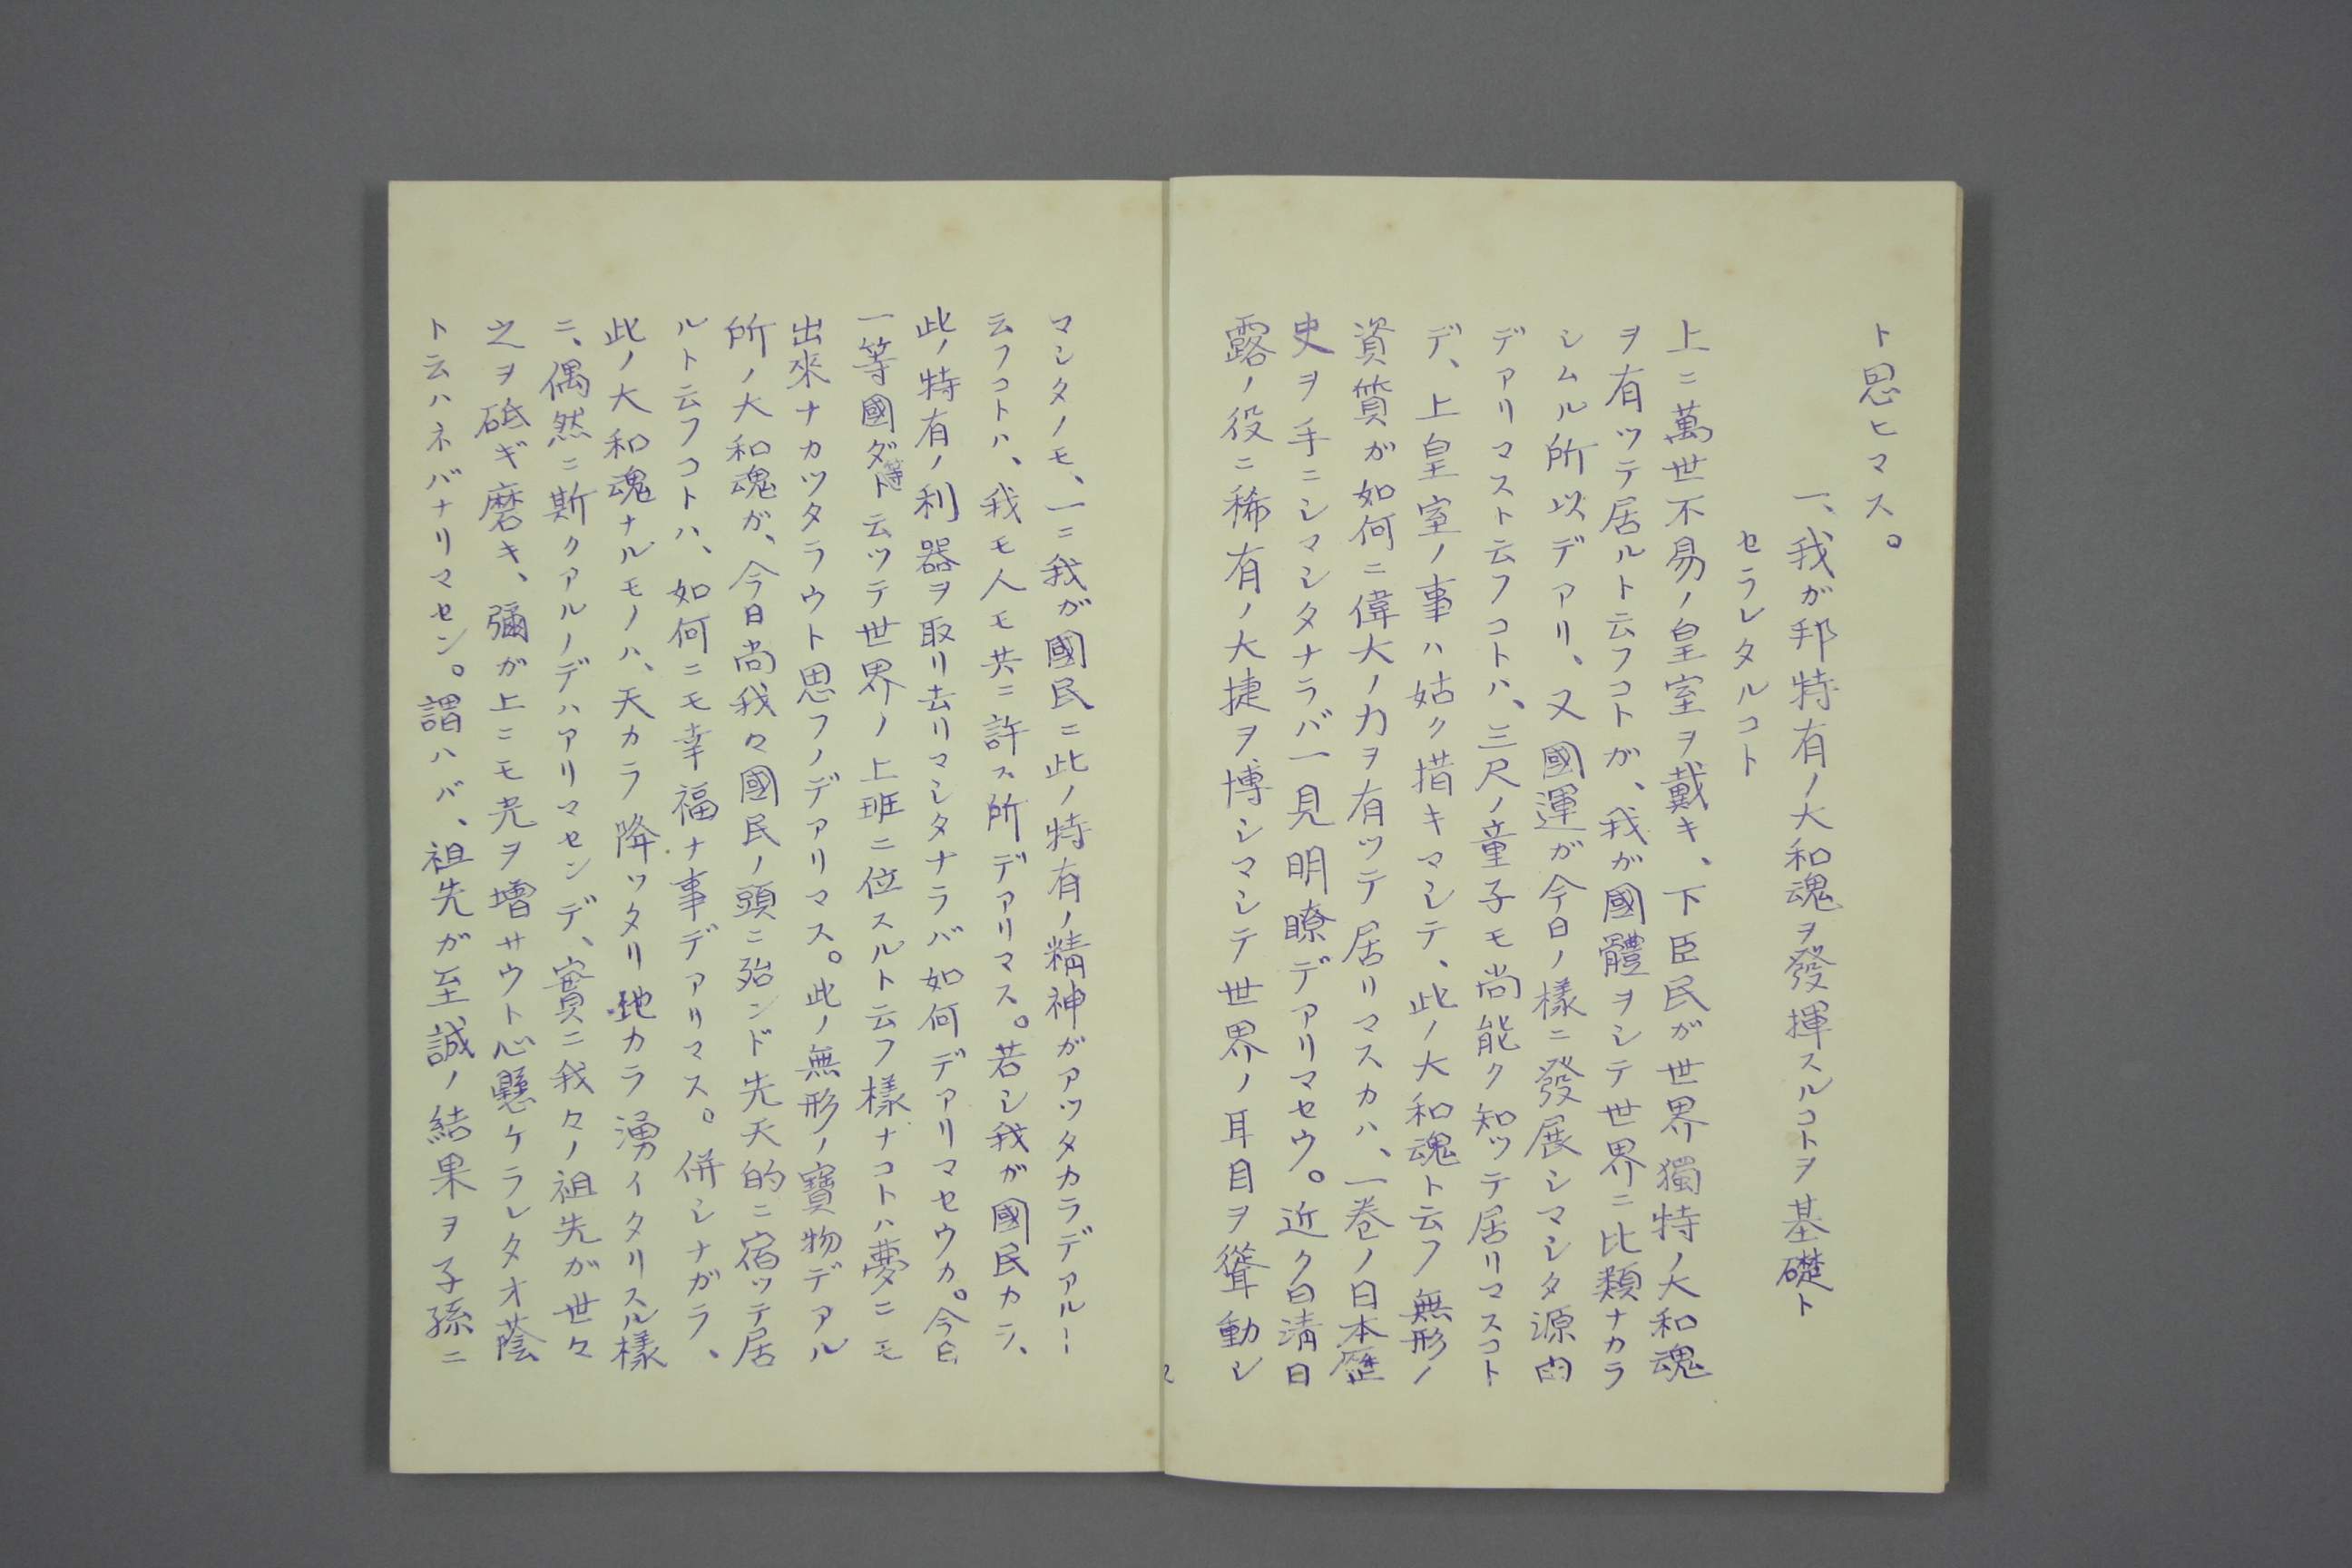 ト思ヒマス。
一、我ガ邦特有ノ大和魂ヲ發揮スルコトヲ基礎ト
セラレタルコト
上ニ萬世不易ノ皇室ヲ戴キ、下臣民ガ世界獨特ノ大和魂
ヲ有ッテ居ルト云フコトガ、我ガ國體ヲシテ世界ニ比類ナカラ
シムル所以デアリ、又國運ガ今日ノ樣ニ發展シマシタ源由
デアリマスト云フコトハ、三尺ノ童子モ尚能ク知ッテ居リマスコト
デ、上皇室ノ事ハ姑ク措キマシテ、此ノ大和魂ト云フ無形ノ
資質ガ如何ニ偉大ノ力ヲ有ッテ居リマスカハ、一巻ノ日本歴
史ヲ手ニシマシタナラバ一見明瞭デアリマセウ。近ク日淸日
露ノ役ニ稀有ノ大捷ヲ博シマシテ世界ノ耳目ヲ聳動シ
マシタノモ、一ニ我ガ國民ニ此ノ特有ノ精神ガアッタカラデアルー
云フコトハ、我モ人モ共ニ許ス所デアリマス。若シ我ガ國民カラ、
此ノ特有ノ利器ヲ取リ去リマシタナラバ如何デアリマセウカ。今日
一等國ダ等ト云ッテ世界ノ上班ニ位スルト云フ樣ナコトハ夢ニモ
出來ナカッタラウト思フノデアリマス。此ノ無形ノ寶物デアル
所ノ大和魂ガ、今日尚我々國民ノ頭ニ殆ンド先天的ニ宿ッテ居
ルト云フコトハ、如何ニモ幸福ナ事デアリマス。併シナガラ、
此ノ大和魂ナルモノハ、天カラ降ッタリ地カラ湧イタリスル樣
ニ、偶然ニ斯クアルノデハアリマセンデ、實ニ我々ノ祖先ガ世々
之ヲ砥ギ磨キ、彌ガ上ニモ光ヲ增サウト心懸ケラレタオ蔭
ト云ハネバナリマセン。謂ハバ、祖先ガ至誠ノ結果ヲ子孫ニ